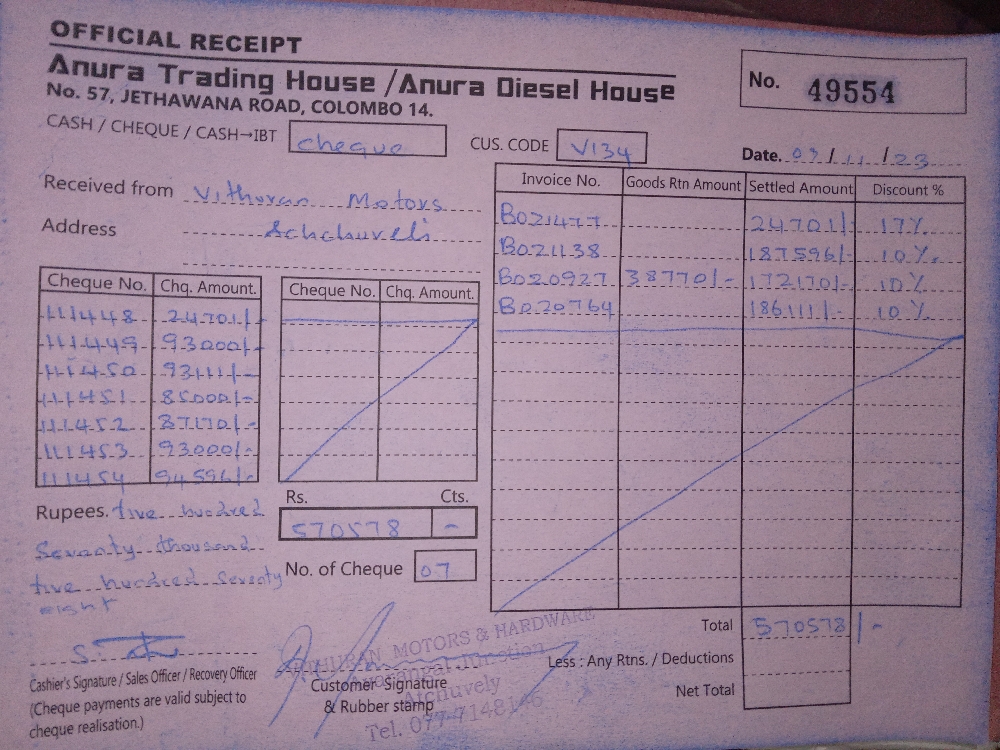 OFFICIAL RECEIPT
Anura Trading House /Anura Diesel House
No. 57, JETHAWANA ROAD, COLOMBO 14.
No. 49554
CASH / CHEQUE / CASH→IBT cheque
CUS. CODE V134
Date. 09/11/23
Received from Vithuran Motors
Address Achchuveli
Invoice No. Goods Rtn Amount Settled Amount Discount %
B021477 24701/- 17%
B021138 187596/- 10%
B020927 38770/- 172170/- 10%
B020764 186111/- 10%
Cheque No. Chq. Amount. Cheque No. Chq. Amount.
111448 24701/-
111449 93000/-
111450 93111/-
111451 85000/-
111452 87170/-
111453 93000/-
111454 94596/-
Rs. Cts.
570578 -
Rupees. five hundred
Seventy thousand
five hundred seventy
eight
No. of Cheque 07
Total 570578/-
Less : Any Rtns. / Deductions
Net Total
Cashier's Signature / Sales Officer / Recovery Officer
(Cheque payments are valid subject to
cheque realisation.)
Customer Signature
& Rubber stamp
VITHURAN MOTORS & HARDWARE
Junction
Atchuvely
Tel. 077-7148146